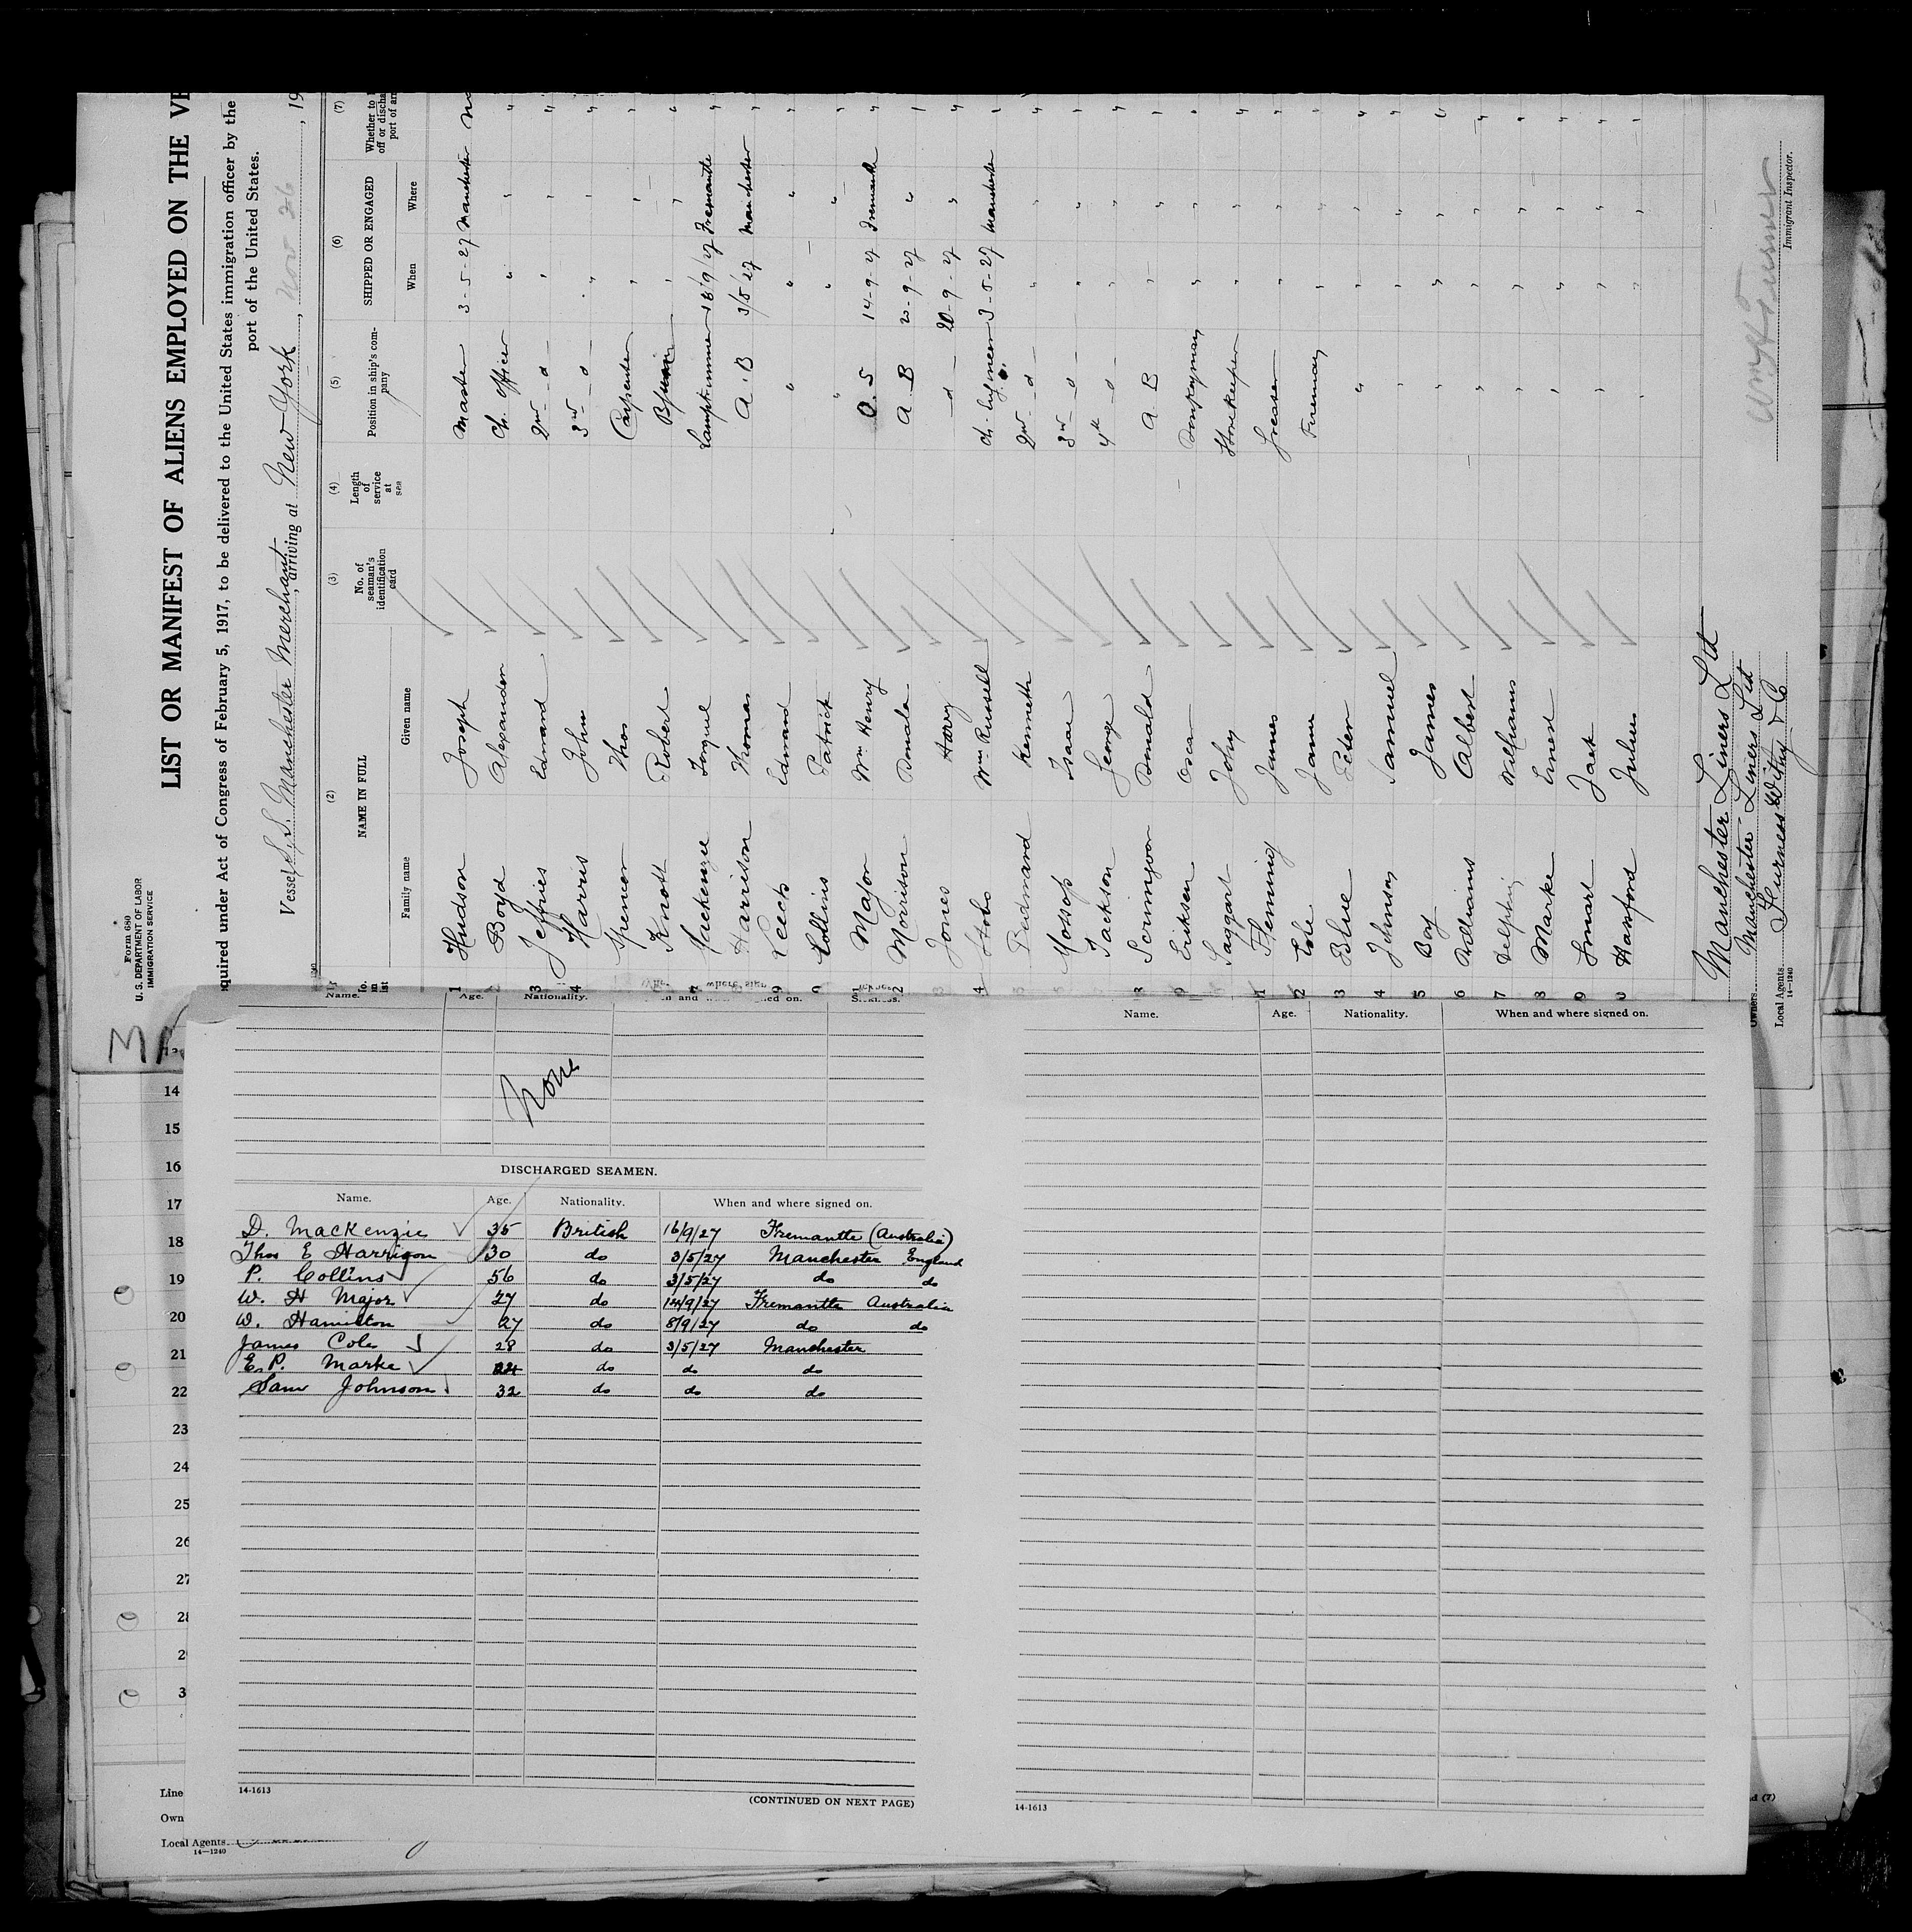 Form 680
U. S. DEPARTMENT OF LABOR
IMMIGRATION SERVICE
LIST OR MANIFEST OF ALIENS EMPLOYED ON THE VE
quired under Act of Congress of February 5, 1917, to be delivered to the United States immigration officer by the
port of the United States.
Vessel S.S. Manchester Merchant, arriving at New York, Nov 26, 19
(2) (3) (4) (5) (6) (7)
NAME IN FULL No. of seaman's identification card Length of service at sea Position in ship's com-pany SHIPPED OR ENGAGED
Whether to off or discha port of ar
Family name Given name When Where
1 Hudson Joseph Master 3-5-27 Manchester
Boyd Alexander Ch. Officer " "
3 Jeffries Edward 2nd - d - " "
4 Harris John 3rd - d - " "
Spencer Thos Carpenter " "
Knott Robert " "
7 Mackenzie Lamptrimmer 16/9/27 Fremantle
Harrison Thomas A.B 3/5/27 Manchester
9 Leech Edward " " "
Collins Patrick " " "
1 Major Wm Henry O.S 14-9-27 Fremantle
2 Morrison Donald A.B 20-9-27 "
3 Jones Harry - d - 20-9-27 "
4 Stobo Wm Russell Ch. Engineer 3-5-27 Manchester
Kenneth 2nd - d - " "
Mossop Isaac 3rd - d - " "
Jackson George 4th - d - " "
8 Donald A.B " "
9 Eriksen Oscar Donkeyman " "
Taggart John Storekeeper " "
1 Flenning James Greaser " "
2 Cole James Fireman " "
3 Blue Peter " " "
4 Johnson Samuel " " "
5 Boy James " " "
6 Williams Albert " " "
7 Delphin Williams " " "
8 Marke Ernest " " "
9 Smart Jack " " "
0 Hanford Julius " " "
Manchester Liners Ltd
Owners Manchester Liners Ltd
Local Agents Furness Withy & Co
14-1240
Wm H Turner
Immigrant Inspector.
MA
Name. Age. Nationality.
None
DISCHARGED SEAMEN.
Name. Age. Nationality. When and where signed on.
D. Mackenzie 35 British 16/9/27 Fremantle (Australia)
Thos E Harrison 30 do 3/5/27 Manchester England
P. Collins 56 do 3/5/27 do do
W. H Major 27 do 14/9/27 Fremantle Australia
W. Hamilton 27 do 8/9/27 do do
James Cole 28 do 3/5/27 Manchester
E. P. Marke 24 do do do
Sam Johnson 32 do do do
14-1613
(CONTINUED ON NEXT PAGE)
Name. Age. Nationality. When and where signed on.
14-1613
14
15
16
17
18
19
20
21
22
23
24
25
26
27
28
2
3
Line
Own
Local Agents
14—1240
d (7)